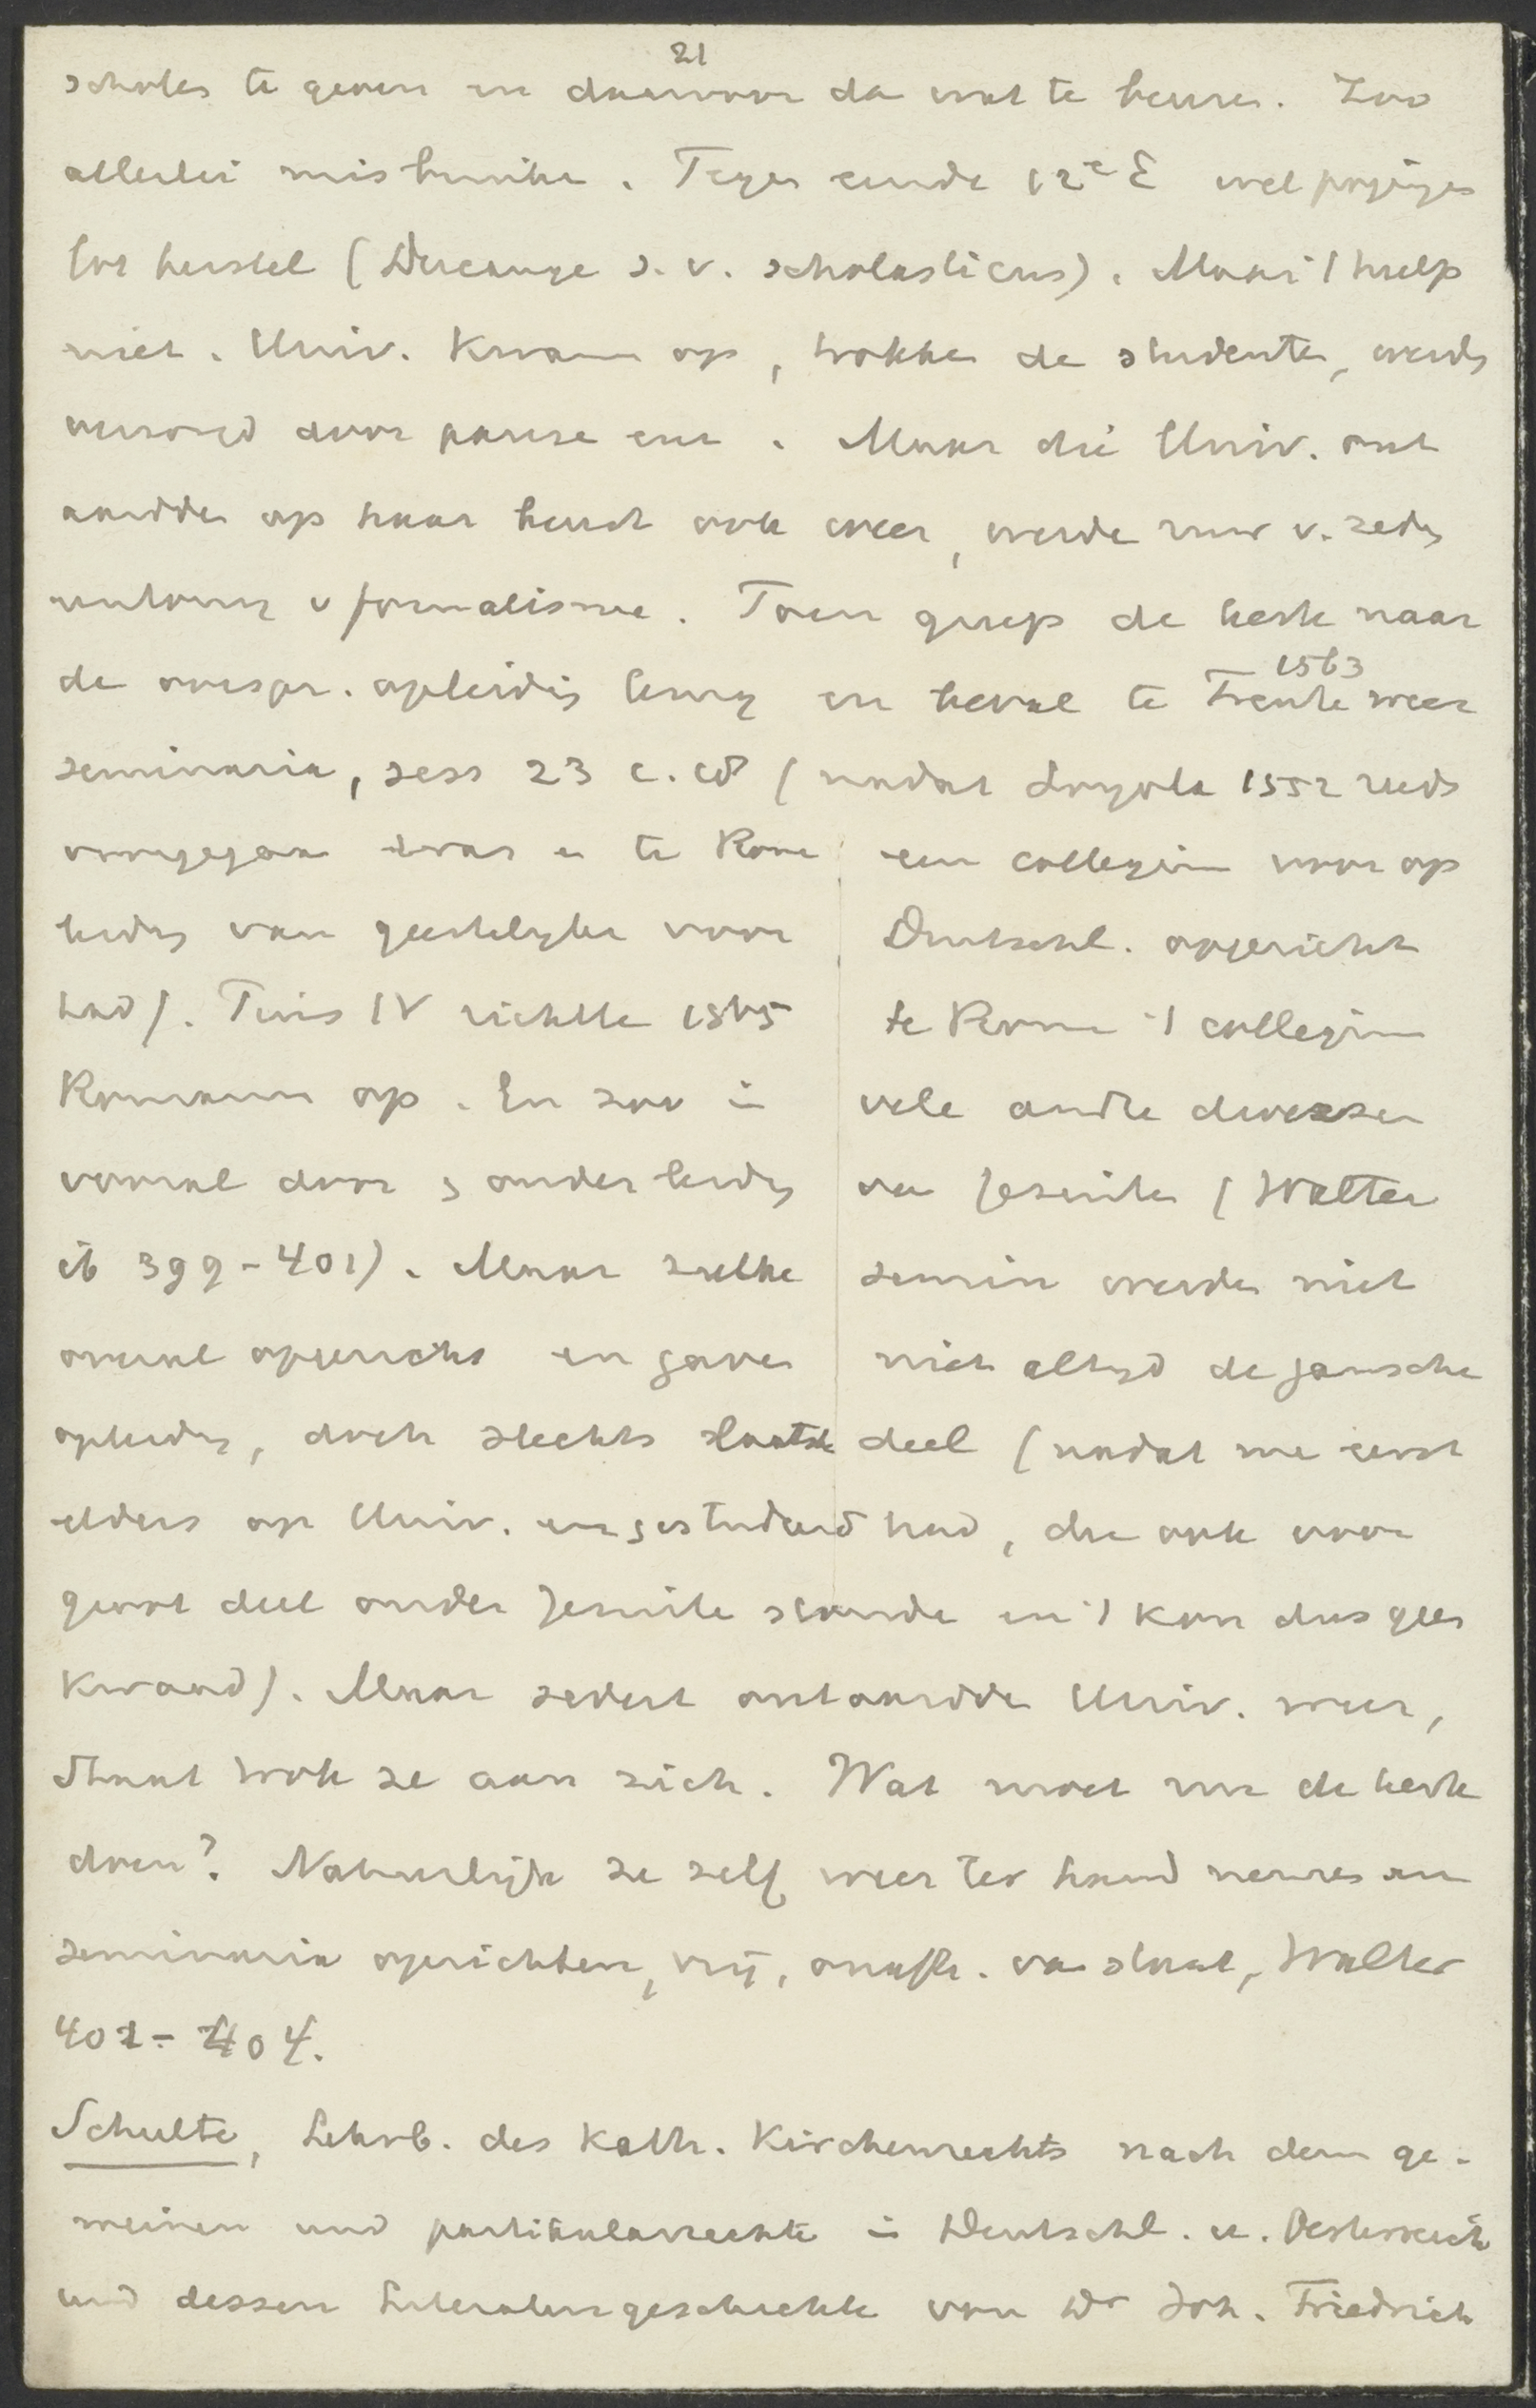 21
scholen te geven en daarvoor da wat te beuren. Zoo
allerlei misbruiken. Tegen einde 12e E wel pogingen
tot herstel (Ducange s. v. scholasticus). Maar 't hielp
niet. Univ. kwam op, trokken de studenten, werden
verzorgd door pausen enz. Maar die Univ. ont
aardden op haar beurt ook weer, werden ruw v. zeden
v formalisme. Toen greep de kerk naar
de oorspr. opleiding terug en beval te Trente 1563 weer
seminaria, sess 23 c. 18 (nadat Loyola 1552 reeds
voorgegaan was en te Rome een collegium voor op
leiding van geestelijken voor Duitschl. opgericht
had). Pius IV richtte 1565 te Rome 't collegium
Romanum op. En zoo in vele andre diocesen
vooral door en onder leiding van Jesuiten (Walter
ib 399-401). Maar zulke semin werden niet
overal opgericht en gaven niet altijd de gansche
opleiding, doch slechts 't laatste deel (nadat me eerst
elders op Univ. enz gestudeerd had, die ook voor
groot deel onder Jesuiten stonden en 't kon dus geen
kwaad). Maar sedert ontaardden Univ. weer,
Staat trok ze aan zich. Wat moet nu de kerk
doen? Natuurlijk ze zelf weer ter hand nemen en
seminaria oprichten, vrij, onafh. van staat, Walter
402-404.
Schulte, Lehrb. des kath. Kirchenrechts nach dem ge-
meinen und partikularrechte in Deutschl. u. Oesterreich
und dessen Literaturgeschichte von Dr Joh. Friedrich